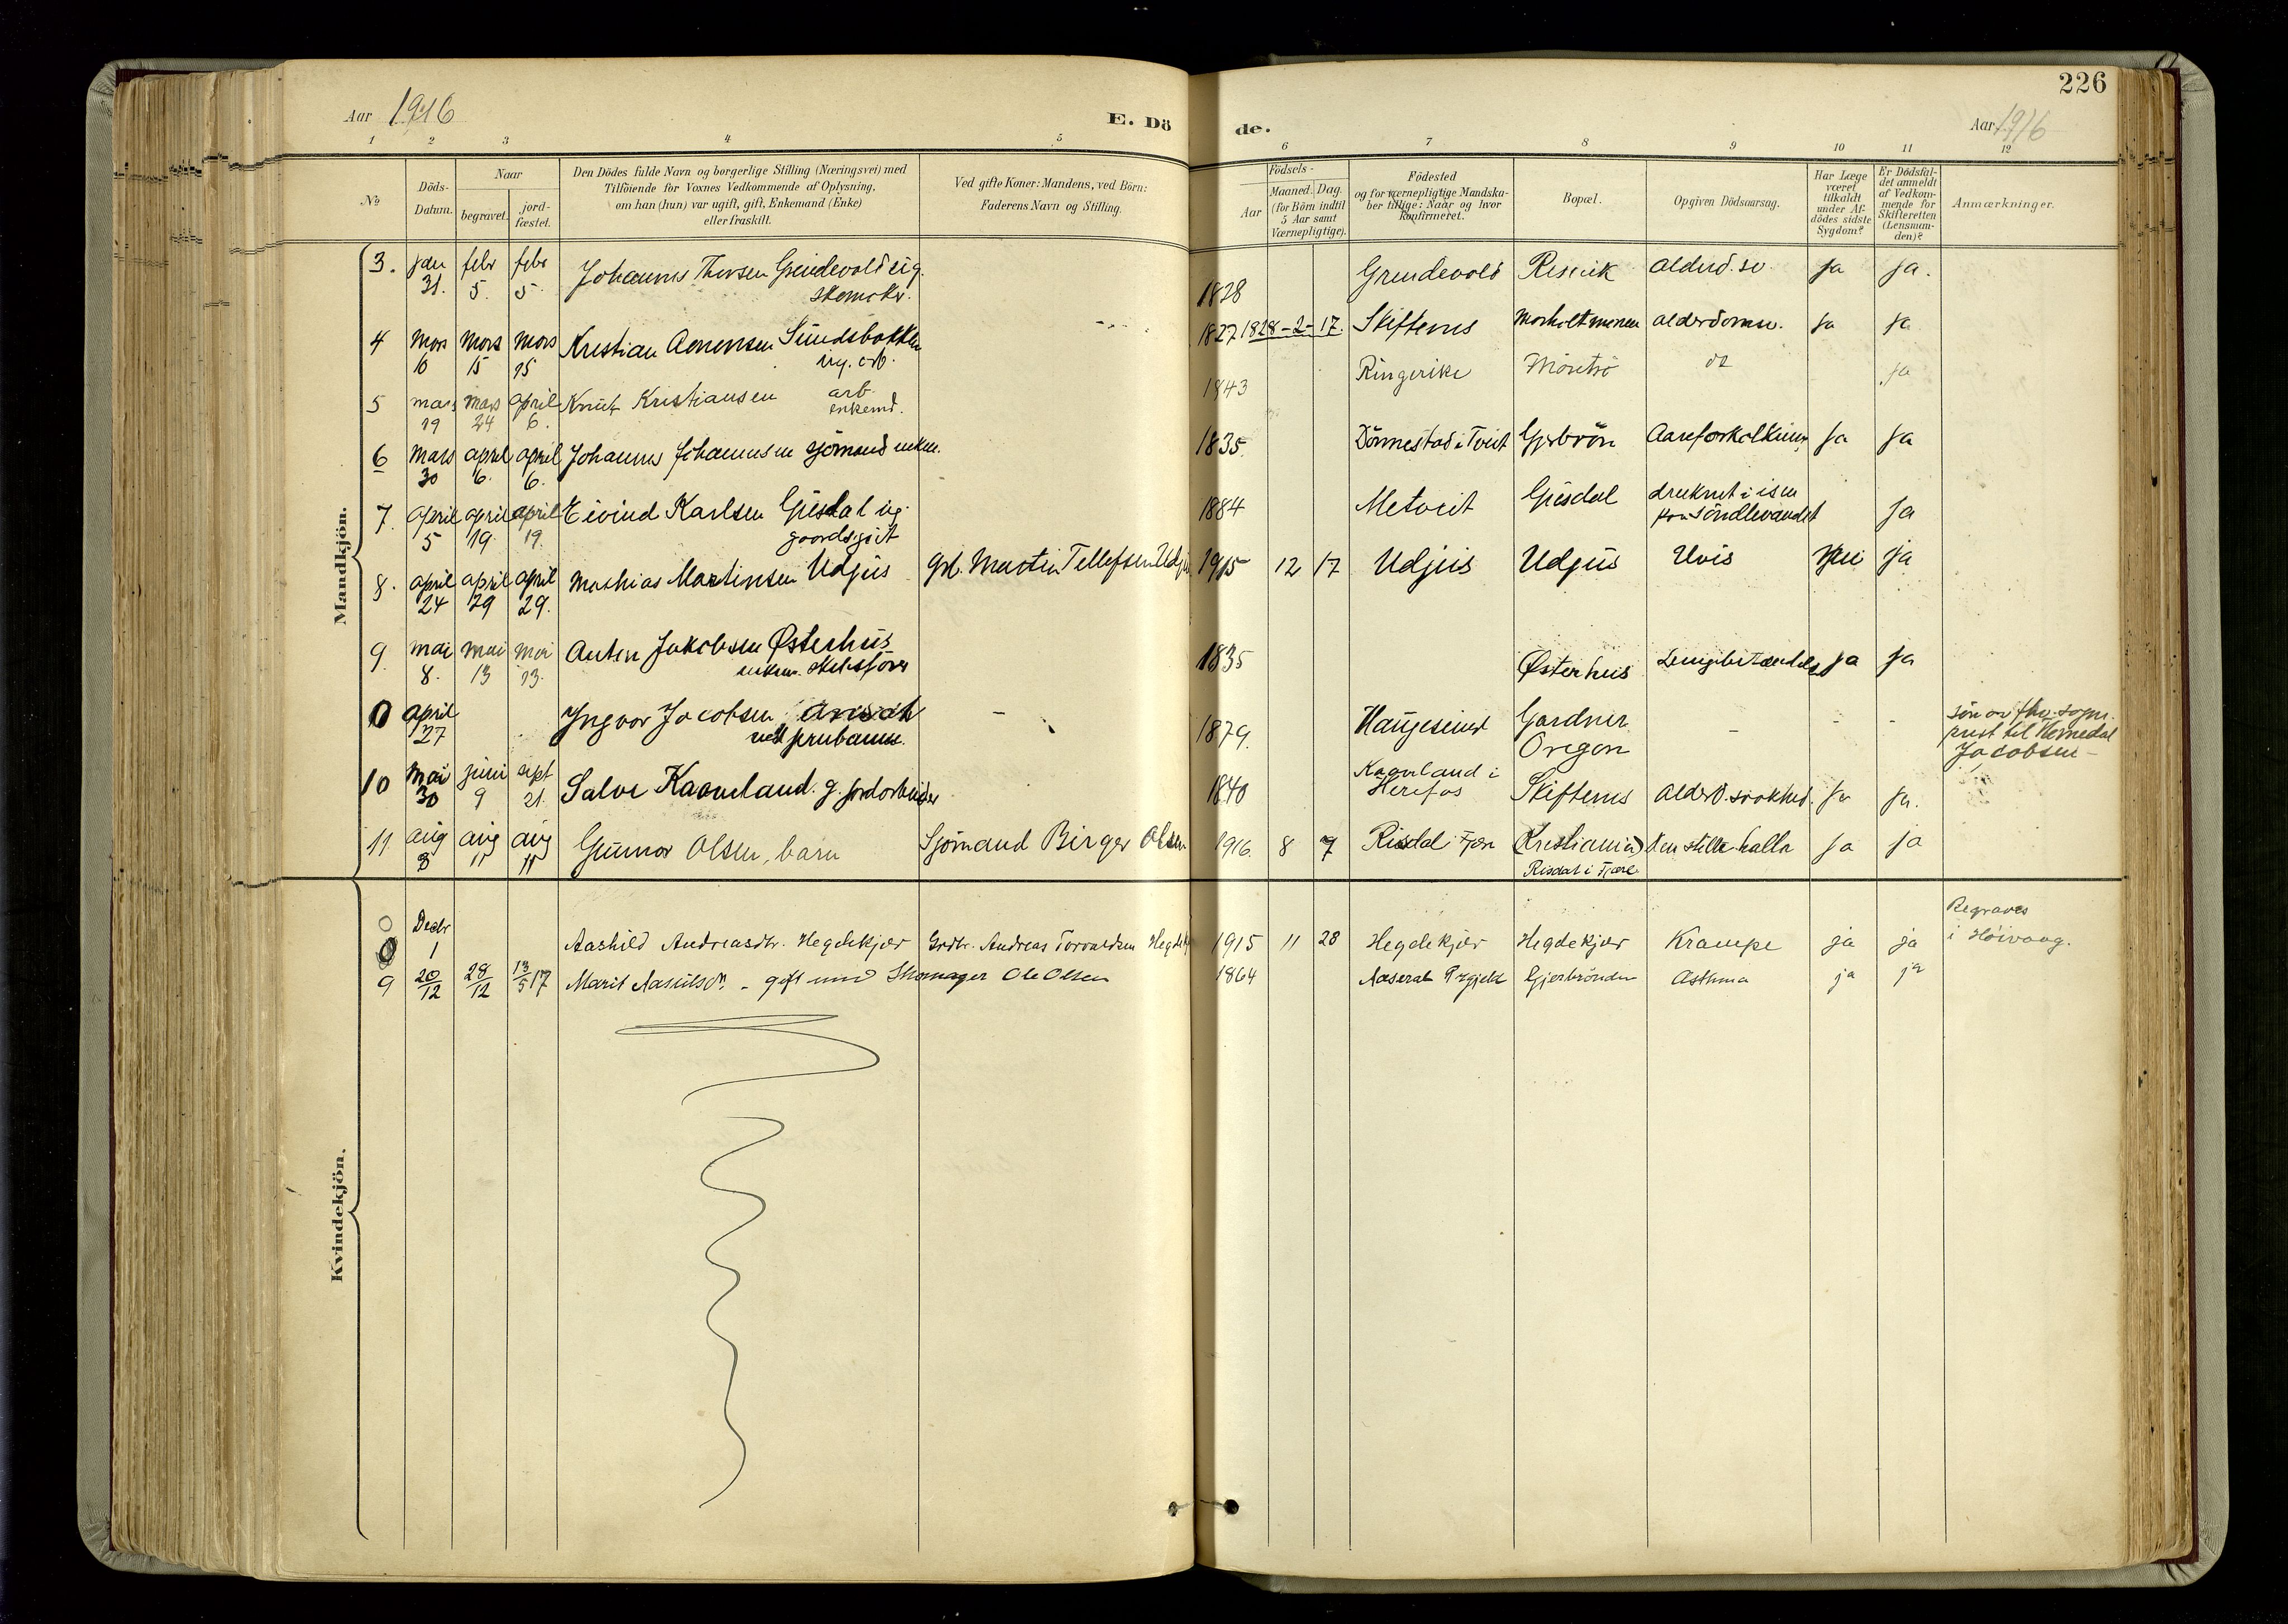 226
Aar 1916
E. Dö
de.
Aar 1916
1 2 3 4 5 6 7 8 9 10 11 12
No
Döds-
Datum.
Naar
begravet.
jord-
fæstet.
Den Dödes fulde Navn og borgerlige Stilling (Næringsvei) med
Tilföiende for Voxnes Vedkommende af Oplysning,
om han (hun) var ugift, gift, Enkemand (Enke)
eller fraskilt.
Ved gifte Koner: Mandens, ved Börn:
Faderens Navn og Stilling.
Födsels-
Aar
Maaned. Dag.
(for Börn indtil
5 Aar samt
Værnepligtige).
Födested
og for værnepligtige Mandska-
ber tillige: Naar og hvor
konfirmeret.
Bopæl.
Opgiven Dödsaarsag.
Har Læge
været
tilkaldt
under Af-
dödes sidste
Sygdom?
Er Dödsfal-
det anmeldt
af Vedkom-
mende for
Skifteretten
(Lensman-
den)?
Anmærkninger.
Mandkjön.
3. jan 31. febr 5. febr 5. Johannes Thorsen Grendevold
1828 Grendevold Resvik ja ja.
4 Mars 6 Mars 15 Mars 15 Kristian Sundsbakken
ug. arb.
1827 1828-2-17. Skiftenes alderdomsv. ja ja
5 mars 19 mars 24 april 6. Knut Kristiansen arb.
enkemd.
1843 Ringerike ja
6 Mars 30 april 6. april 6. Johannes Johannesen sjömand enkem.
1835 Dönnestad i Tveit Aareforkalkning ja ja
7. april 5 april 19 april 19. Eivind Karlsen ug.
gaardsgut
1884 druknet i isen
ja
8. april 24 april 29 april 29. Mathias Martinsen Udjus Gd. Martin Tellefsen Udjus 1915 12 17 Udjus Udjus Uvis nei ja
9. mai 8. mai 13 mai 13. Anton Jakobsen Østerhus
enkem. skibsförer
1835 Østerhus ja ja
0 april 27 Yngvar Jacobsen
ved jernbanen.
1879. Haugesund Gardner
Oregon
sön av fhv. sogne-
prest til Homedal
Jacobsen
10 Mai 30 juni 9 sept 21. Salve Kaaveland. g. jordarbeider
1840 Kaaveland i
Herefos Skiftenes ja ja.
11 aug 8 aug 11 aug 11 Gunnar Olsen, barn Sjömand Birger Olsen 1916. 8 7 Risdal i Fjære (Kristiania)
Risdal i Fjære ja ja
Kvindekjön.
0 Decbr 1 Aashild Andreasdtr. Hegdekjær Grdbr. Andreas Torvaldsen 1915 11 28 Hegdekjær Hegdekjær Krampe ja ja
Begraves
i Höivaag.
9 20/12 28/12 13/5 17 Marit - gift med Skomager Ole Olsen 1864 Aaseral Prgjeld Gjerbrönden Asthma ja ja